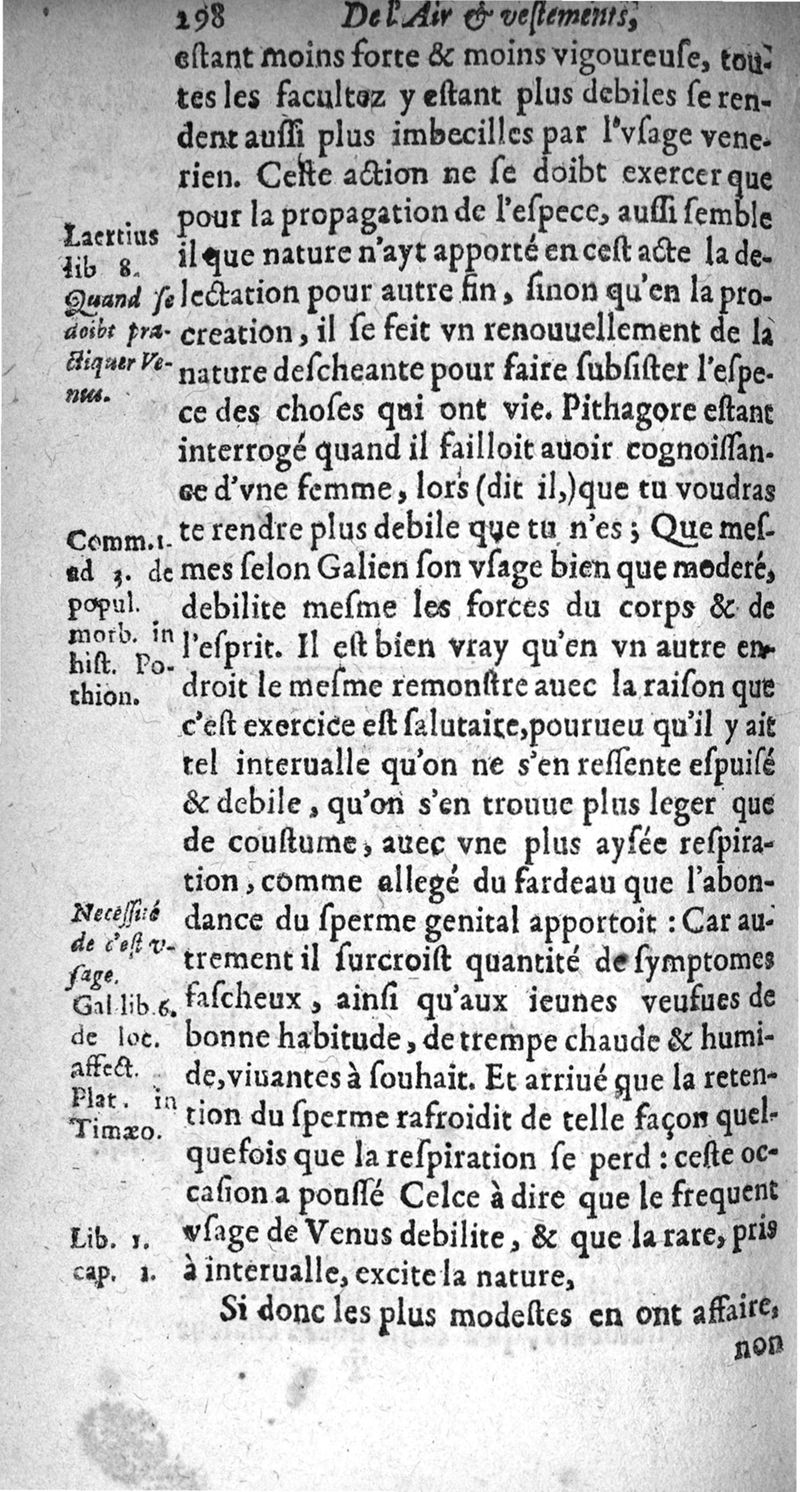 198 De l'Air & veſtements,
eſtant moins forte & moins vigoureuſe, tou-
tes les facultez y eſtant plus debiles ſe ren-
dent auſſi plus imbecilles par l'vſage vene-
rien. Ceſte action ne ſe doibt exercer que
pour la propagation de l'eſpece, auſſi ſemble
il que nature n'ayt apporté en ceſt acte la de-
lectation pour autre fin, ſinon qu'en la pro-
creation, il ſe feit vn renouuellement de la
nature deſcheante pour faire ſubſiſter l'eſpe-
ce des choſes qui ont vie. Pithagore eſtant
interrogé quand il failloit auoir cognoiſſan-
ce d'vne femme, lors (dit il,) que tu voudras
te rendre plus debile que tu n'es; Que meſ-
mes ſelon Galien ſon vſage bien que moderé,
debilite meſme les forces du corps & de
l'eſprit. Il eſt bien vray qu'en vn autre en-
droit le meſme remonſtre auec la raiſon que
c'eſt exercice eſt ſalutaire, pourueu qu'il y ait
tel interualle qu'on ne s'en reſſente eſpuiſé
& debile, qu'on s'en trouue plus leger que
de couſtume, auec vne plus ayſée reſpira-
tion, comme allegé du fardeau que l'abon-
dance du ſperme genital apportoit : Car au-
trement il ſurcroiſt quantité de ſymptomes
faſcheux, ainſi qu'aux ieunes veufues de
bonne habitude, de trempe chaude & humi-
de, viuantes à ſouhait. Et arriué que la reten-
tion du ſperme rafroidit de telle façon quel-
quefois que la reſpiration ſe perd : ceſte oc-
caſion a pouſſé Celce à dire que le frequent
vſage de Venus debilite, & que la rare, pris
à interualle, excite la nature,
Si donc les plus modeſtes en ont affaire,
non
Laertius
lib 8.
Quand ſe
doibt pra-
ctiquer Ve-
nus.
Comm. 1.
ad 3. de
popul.
morb. in
hiſt. Po-
thion.
Neceſſité
de c'eſt v-
ſage.
Gal lib. 6.
de loc.
affect.
Plat. in
Timæo.
Lib. 1.
cap. 1.